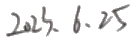 2025. 6. 25